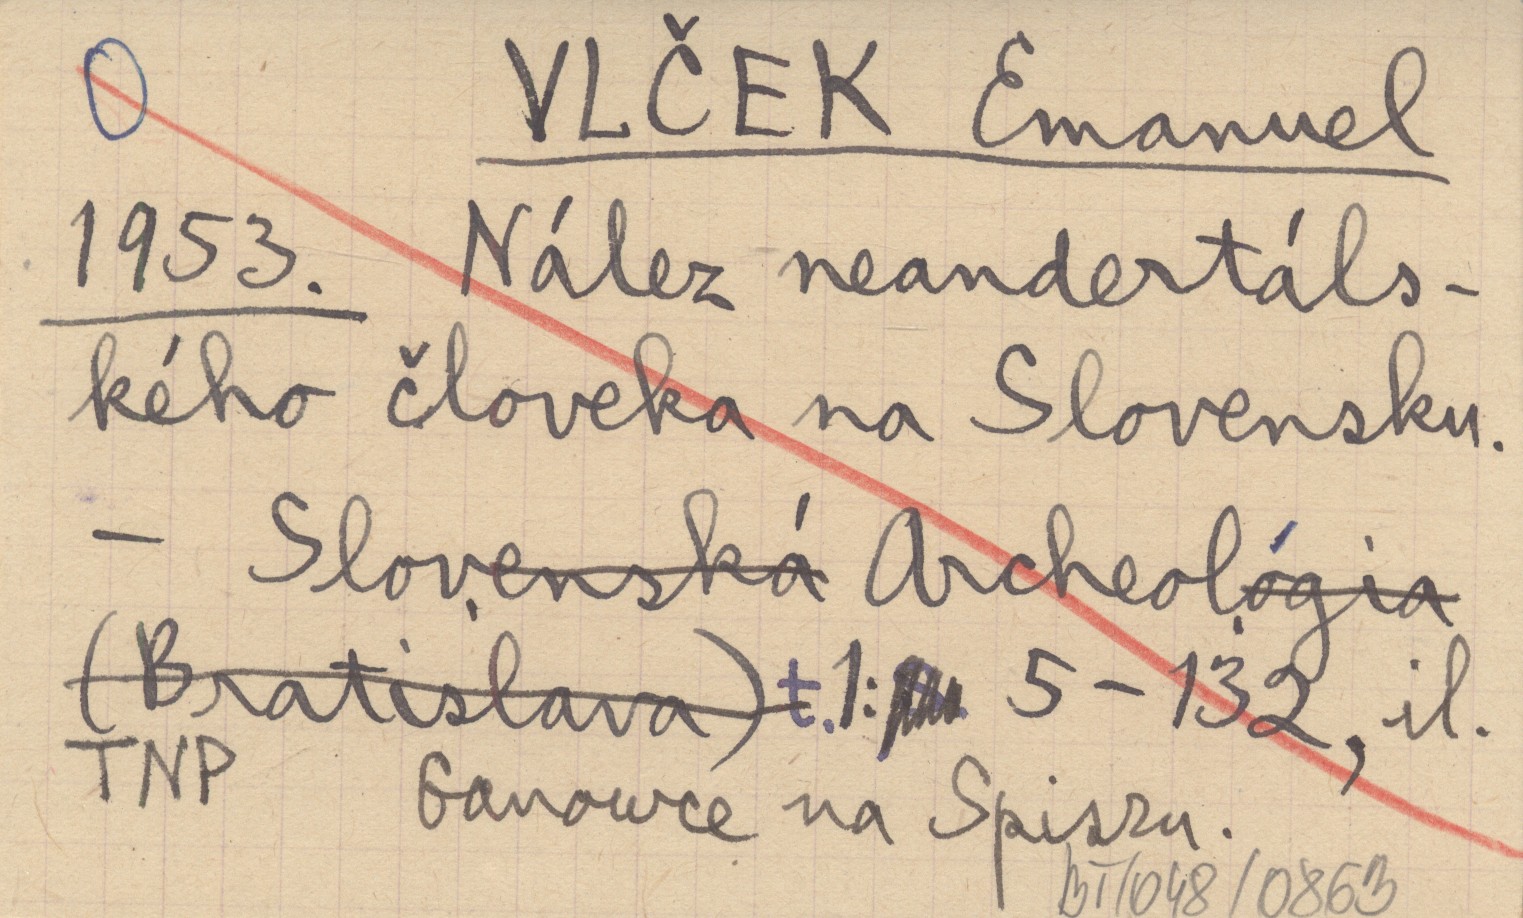 VLČEK Emanuel
1953. Nález neandertáls-
kého človeka na Slovensku.
- Slovenská Archeológia
(Bratislava) t. 1: 5-132, il.
TNP Ganowce na Spiszu.
BT/048/0863